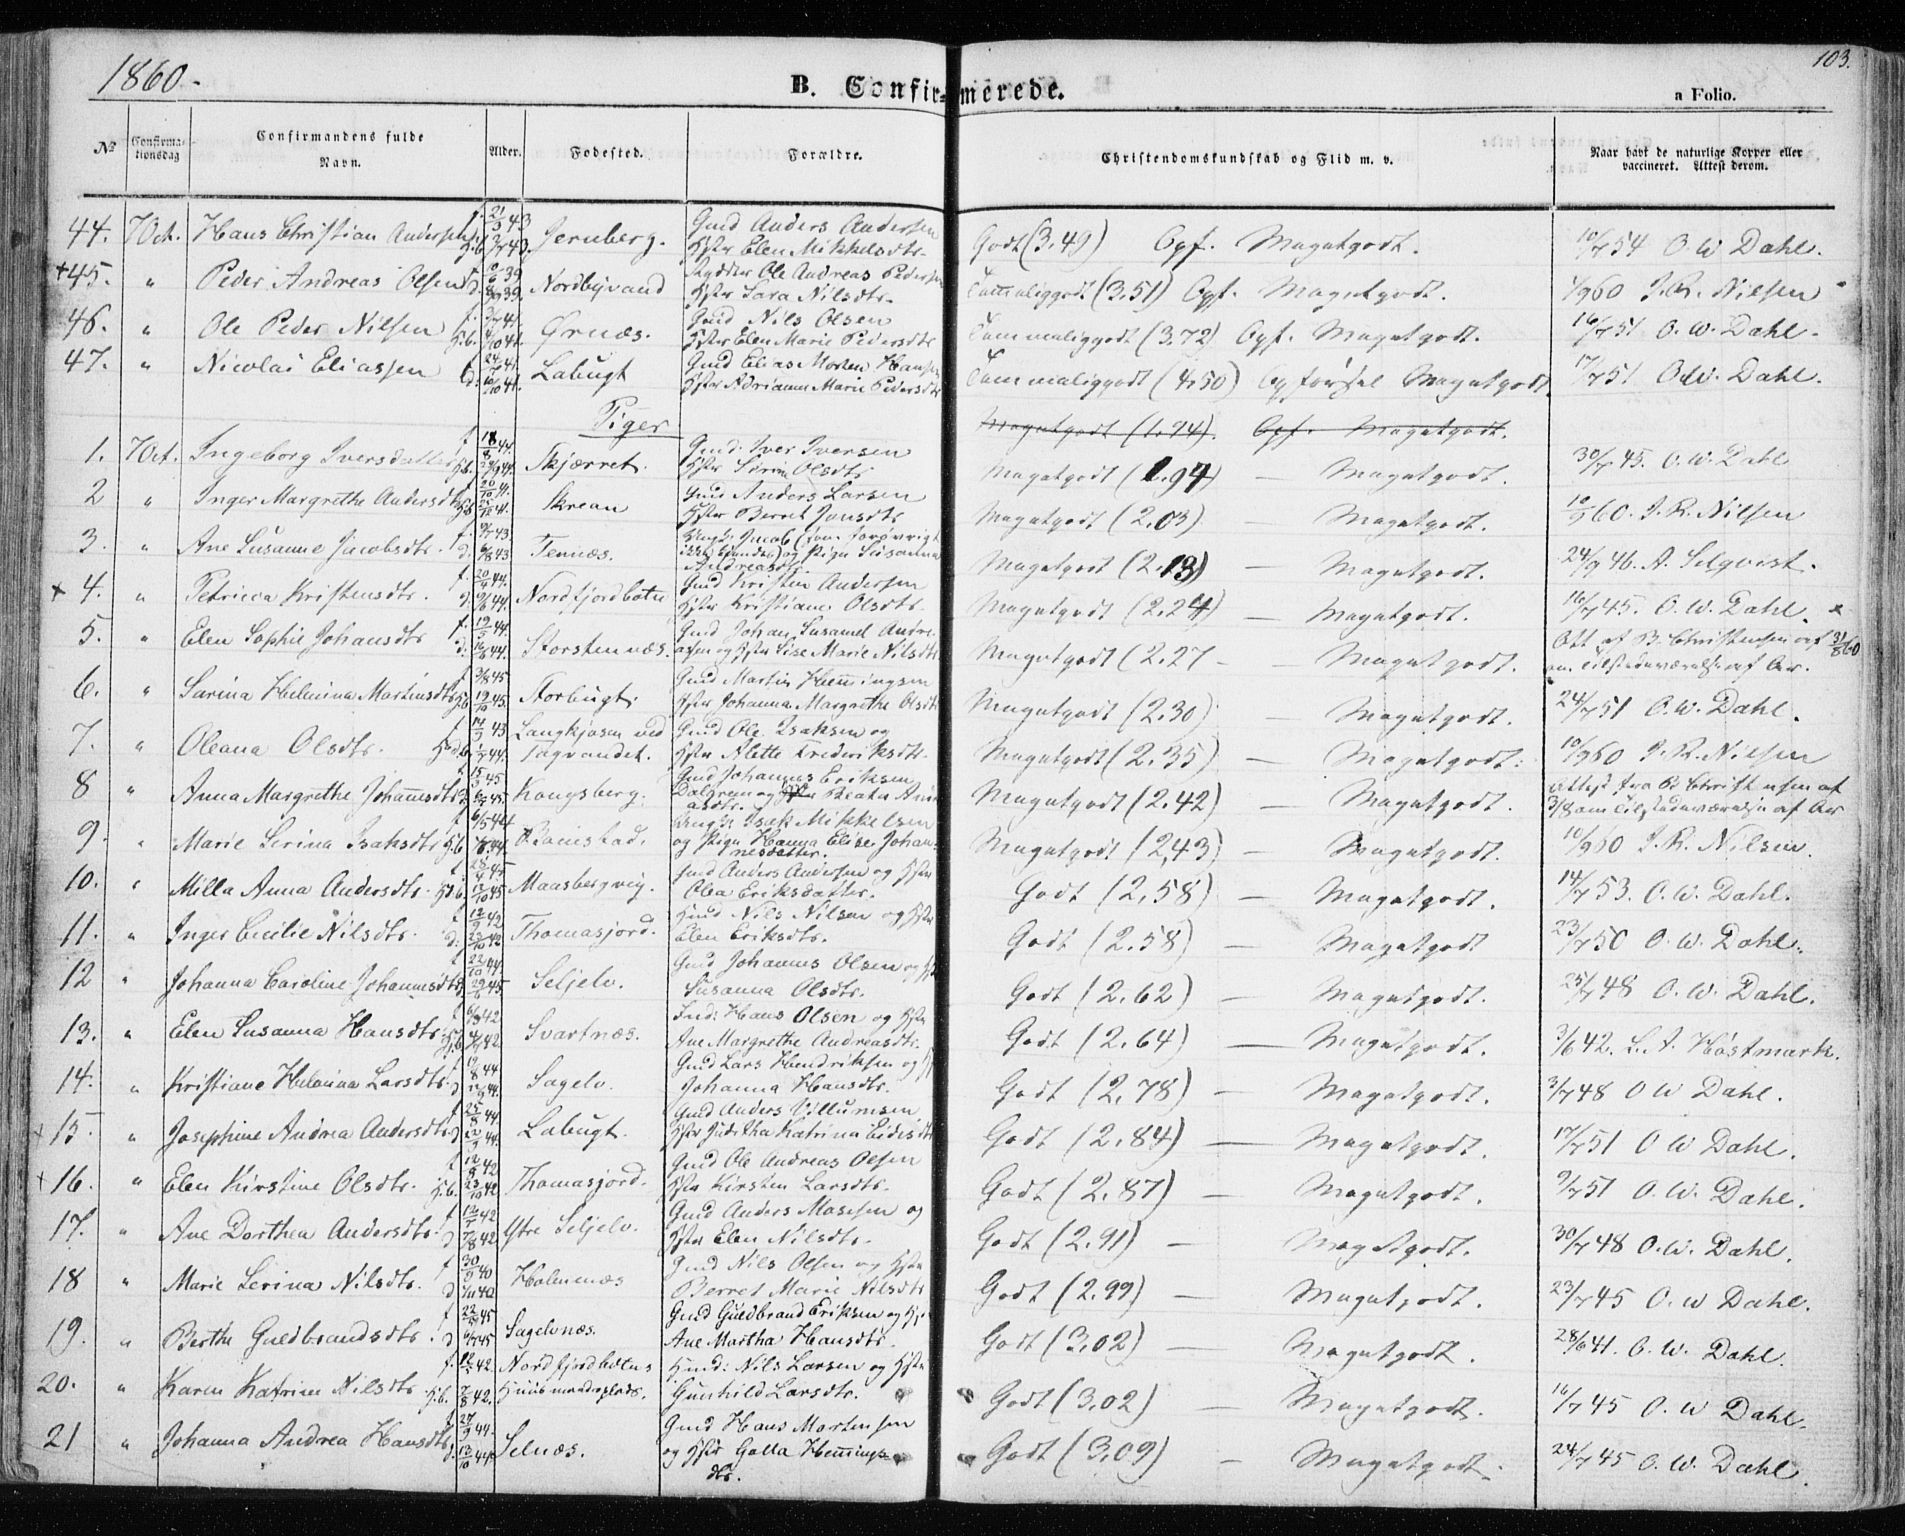 1860.
103.
B. Confirmerede.
a Folio.
No
Confirmationsdag
Confirmandens fulde Navn.
Alder.
Fødested.
Forældre.
Christendomskundskab og Flid m. v.
Naar havt de naturlige Kopper eller vaccineret. Attest derom.
44. 7 Oct. Hans Christian Andersen f. 21/3 43 Jernberg. Gmd Anders Andersen Hstr Elen Mikkelsdtr. Godt (3,49) Opf. Megetgodt. 10/7 54 O. W. Dahl.
+45. " Peder Andreas Olsen Nordbyvand Rydder Ole Andreas Pedersen Hstr Sara Nilsdtr. Tem̄eliggodt (3,51) Opf. Megetgodt. J. R. Nilsen
46. " Ole Peder Nilsen Ørnæs. Gmd Nils Olsen Hstr Elen Marie Pedersdtr Temmeliggodt (3,72) Opf. Megetgodt. 16/7 51 O. W. Dahl.
47. " Nicolai Eliassen Labugt Gmd Elias Morten Hansen Hstr Adrianna Marie Pedersdtr Temmeliggodt (4,50) Opførsel Megetgodt. 17/7 51 O. W. Dahl.
Piger
Megetgodt (1,74). Opf. Megetgodt.
1. 7 Oct. Ingeborg Iversdatter f. 18/8 44. Skjærret. Gmd: Iver Iversen Hstr Olsdtr Megetgodt (1,94) — Megetgodt. 30/7 45. O. W. Dahl
2 " Inger Margrethe Andersdtr Skrean Gmd Anders Larsen Hstr Berret Jonsdtr Megetgodt (2,03) — Megetgodt. 60. J. R. Nilsen
3. " Ane Susanne Jacobsdtr. Tennæs. Ungk: Jacob og Pige Susanna Andreasdtr Megetgodt (2,13) — Megetgodt. 24/9 46. A. Selqvist.
+ 4. " Petricca Kristensdtr. Nordfjordbotn Gmd Kristen Andersen Hstr Kristiane Olsdtr. Megetgodt (2,24) — Megetgodt. 16/7 45. O. W. Dahl. x
5. " Elen Sophie Johansdtr Storstennæs. Gmd Johan Susamel Andreasen og Hstr Sise Marie Nilsdtr Megetgodt (2,27 — Megetgodt. Att af B. Christensen af 31/8 60 om Tilstedeværelse af Ar.
6. " Sarina Helmina Martinsdtr Storbugt. Gmd Martin Hem̄ingsen Hstr Johanna Margrethe Olsdtr Megetgodt (2,30) — Megetgodt. 24/7 51 O. W. Dahl.
7. " Oleana Olsdtr. Langkjosen ved Sagvandet. Gmd Ole Isaksen og Hstr Alette Frederiksdtr. Megetgodt (2,35) — Megetgodt. 10/9 60 J. R. Nilsen
8 " Anna Margrethe Johan̄esdtr Kongsberg. Gmd Johannes Eriksen Dalgreen og Beata Andreasdtr. Megetgodt (2,42) — Megetgodt. Attest fra B Christensen af 3/8 om Tilstedeværelse af Ar
9. " Marie Serina Isaksdtr Ungk: Isak Mikkelsen og Pige Hanna Elise Johannesdatter. Megetgodt (2,43) — Megetgodt. 10/9 60 J. R. Nilsen.
10. " Milla Anna Andersdtr. Maasbergvig. Gmd Anders Andersen og Hstr Olea Eriksdatter. Godt (2,58) — Megetgodt. 14/7 53. O. W. Dahl.
11. " Inger Cicilie Nilsdtr. Thomasjord. Hmd Nils Nilsen og Hstr Elen Eriksdtr. Godt (2,58) — Megetgodt 23/7 50 O. W. Dahl.
12 " Johanna Caroline Johannesdtr Seljelv. Gmd Johannes Olsen og Hstr Susanna Olsdtr. Godt (2,62) — Megetgodt. 25/7 48 O. W. Dahl.
13. " Elen Susanna Hansdtr Svartnæs. Ind: Hans Olsen og Hstr Ane Margrethe Andreasdtr. Godt (2,64) — Megetgodt. 3/6 42. L. A. Høstmark.
14. " Kristiane Helmina Larsdtr. Sagelv. Gmd Lars Hendriksen og Hstr Johanna Hansdtr. Godt (2,78) — Megetgodt. 3/7 48 O W Dahl.
+ 15. " Josephine Andrea Andersdtr Labugt. Gmd Anders Villumsen Hstr Juditha Katrina Godt (2,84) — Megetgodt. 17/7 51 O W Dahl.
+ 16. " Elen Kirstine Olsdtr. Thomasjord. Gmd Ole Andreas Olsen Hstr Kirsten Larsdtr. Godt (2,87) — Megetgodt. 9/7 51 O. W. Dahl.
17. " Ane Dorthea Andersdtr. Ytre Seljelv. Gmd Anders Mosesen og Hstr Elen Nilsdtr. Godt (2,91) — Megetgodt. 30/7 48 O. W. Dahl.
18 " Marie Serina Nilsdtr. Holmenæs Gmd Nils Olsen og Hstr Berret Marie Nilsdtr Godt (2,99) — Megetgodt. 23/7 45 O. W Dahl.
19. " Berthe Guldbrandsdtr. Sagelvnæs. Gmd Guldbrand Eriksen og Hstr Ane Martha Hansdtr. Godt (3,02) — Megetgodt. 28/6 41. O. W. Dahl.
20. " Karen Katrine Nilsdtr Nordfjordbotns Huusmandsplads. Hmd: Nils Larsen og Hstr Gunhild Larsdtr. Godt (3,02) — Megetgodt. 16/7 45 O. W Dahl.
21 " Johanna Andrea Hansdtr Selnæs. Gmd Hans Mortensen og Hstr Golla Hem̄ingsdtr. Godt (3,09) — Megetgodt. 24/7 45 O. W. Dahl.